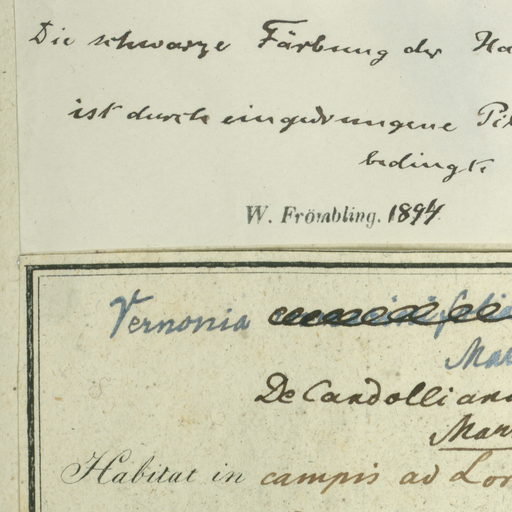 Die schwarze Färbung der Ha
ist durch eingedrungene Pil
bedingt.
W. Frömbling. 1894.
Vernonia
Mar
De Candolliana
Mart
Habitat in campis ad Lor